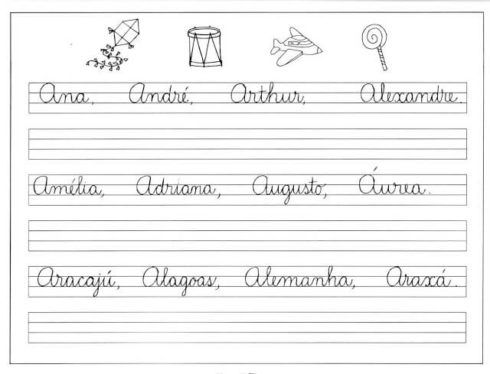 Ana, André, Arthur, Alexandre.
Amélia, Adriana, Augusto, Áurea.
Aracajú, Alagoas, Alemanha, Araxá.